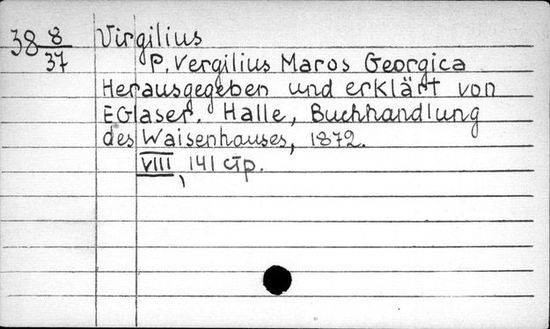 38 8/37 Virgilius
P. Vergilius Maros Georgica
Herausgegeben und erklärt von
E Glaser. Halle, Buchhandlung
des Waisenhauses, 1872.
VIII, 141 стр.